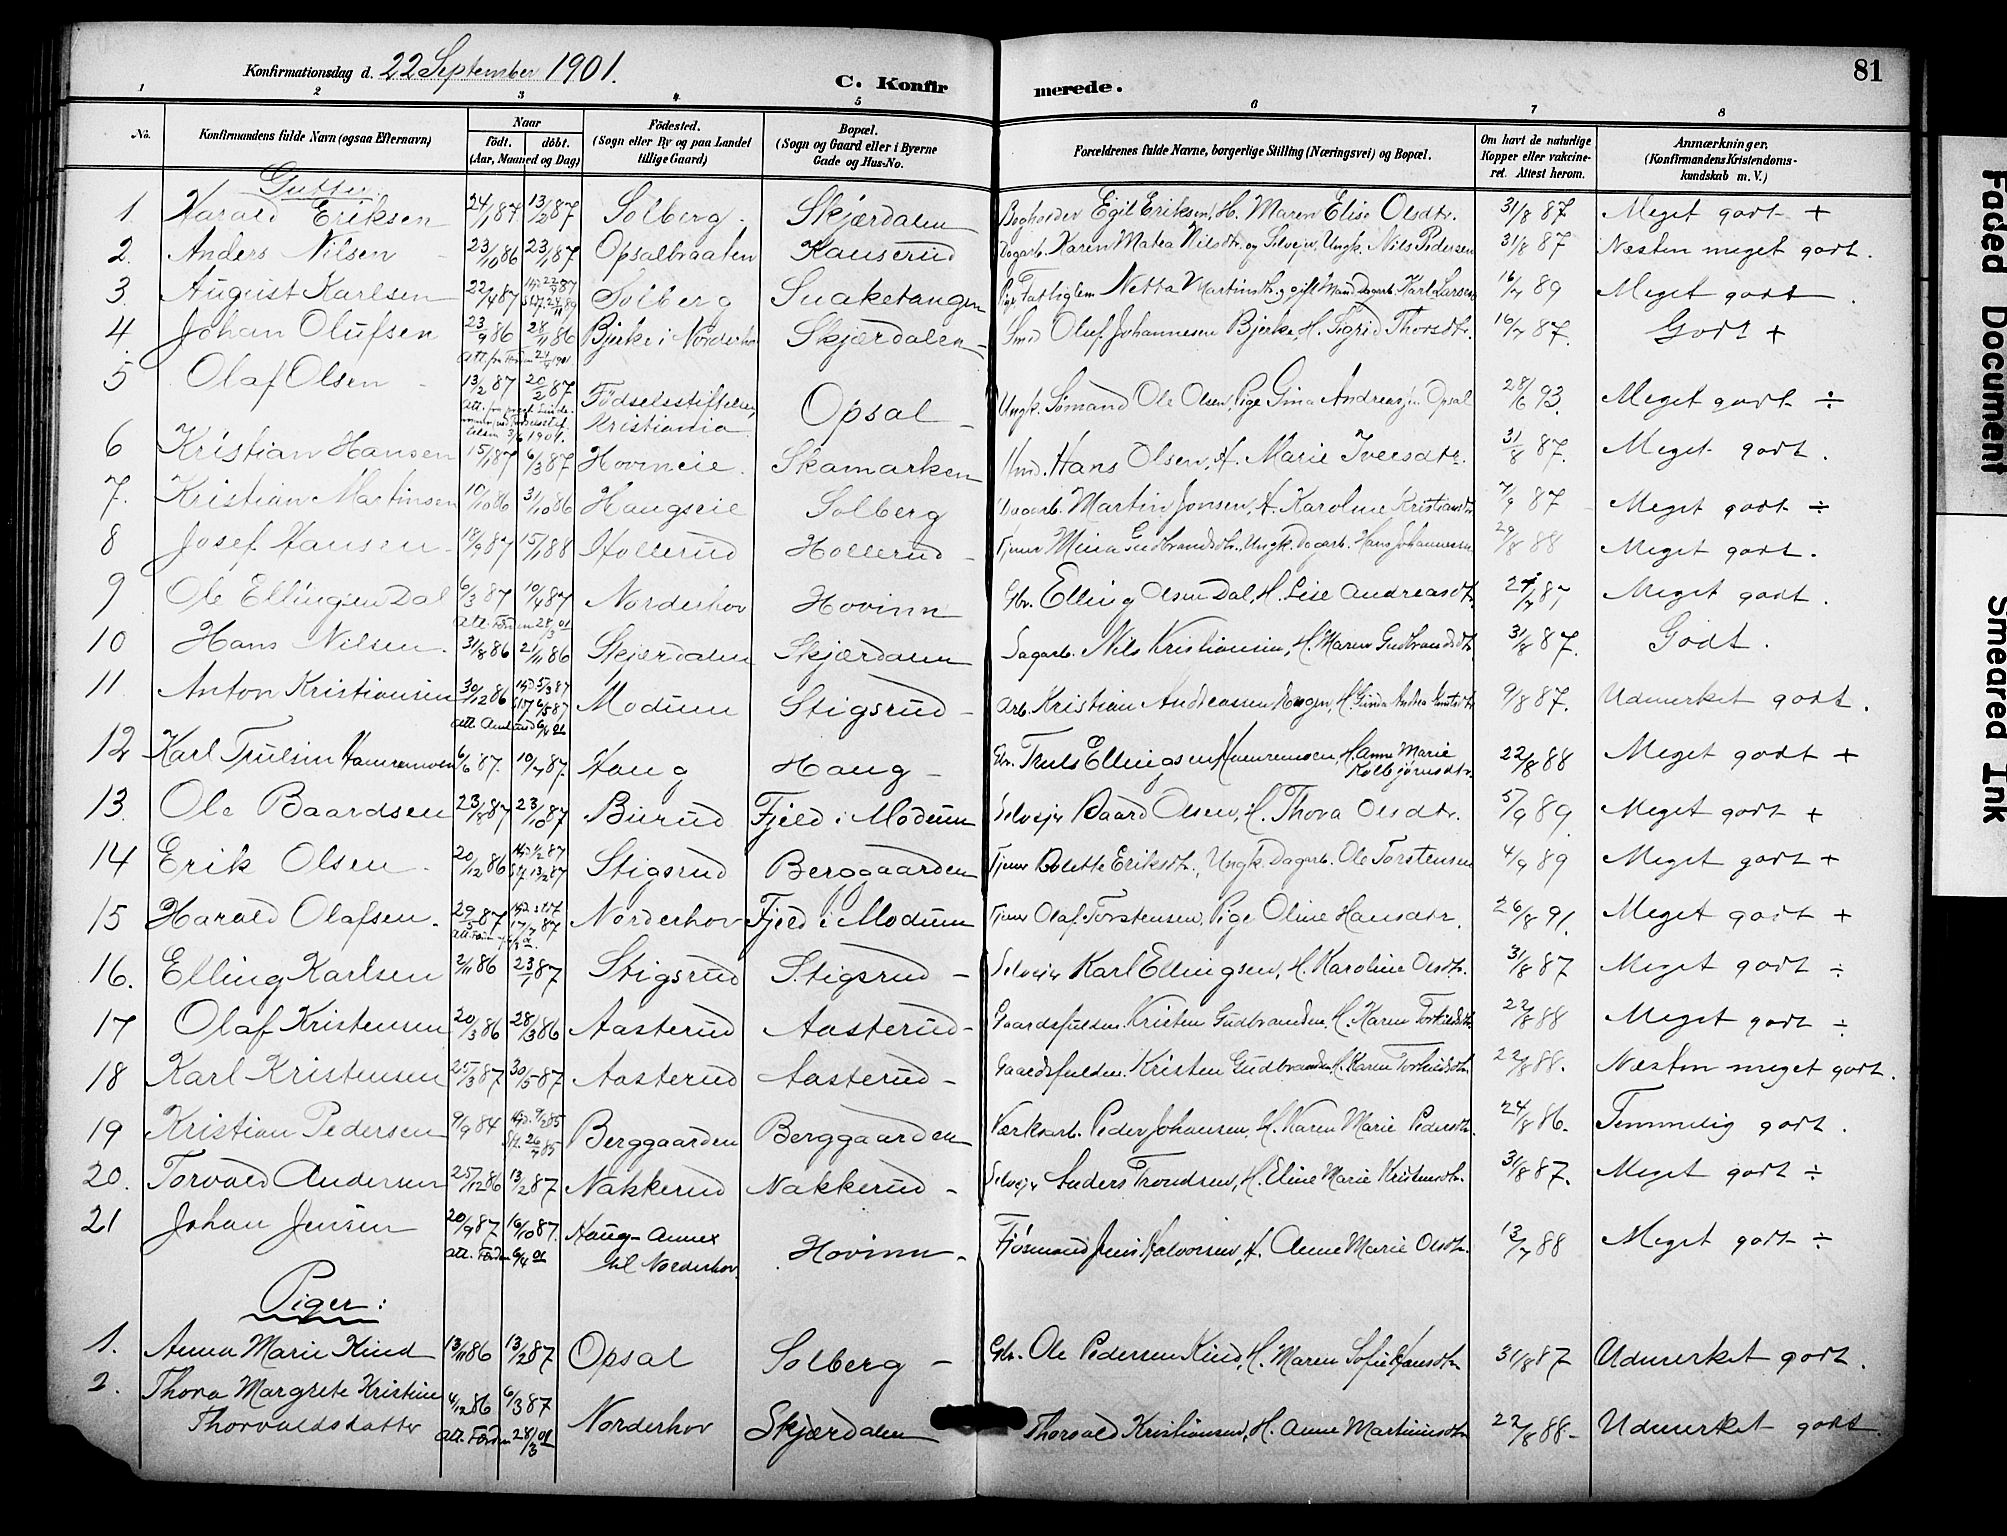 Konfirmationsdag d. 22 September 1901.
C. Konfirmerede.
81
1 2 3 4 5 6 7 8
No.
Konfirmandens fulde Navn (ogsaa Efternavn)
Naar
födt. döbt.
(Aar, Maaned og Dag)
Födested.
(Sogn eller By og paa Landet tillige Gaard)
Bopæl.
(Sogn og Gaard eller i Byerne Gade og Hus-No.
Forældrenes fulde Navne, borgerlige Stilling (Næringsvei) og Bopæl.
Om havt de naturlige Kopper eller vakcineret. Attest herom.
Anmærkninger.
(Konfirmandens Kristendomskundskab m. V.)
Gutter.
1. Harald Eriksen 24/1 87 13/2 87 Solberg. Skjærdalen Egil Eriksen, H. Maren Elise Olsdtr. 31/8 87 Meget godt +
2. Anders Nilsen 23/10 86 23/1 87 Opsalbraaten Kauserud Dagarb. Karen Matea Nilsdtr. og Selvejer, Ungk. Nils Pedersen 31/8 87 Næsten meget godt.
3. August Karlsen 22/4 87 Solberg Snaketangen Netta Martinsdtr. gift Mand Dagarb. Karl Larsen 89 Meget godt.
4 Johan Olufsen 23/9 86 28/11 86 Bjerke i Norderhov Skjærdalen Smed Oluf Johannesen Bjerke, H. Sigrid Thorsdtr. 16/7 87. Godt +
5 Olaf Olsen 13/2 87 20/2 87 Födselsstiftelsen, Kristiania Opsal Ungk. Sömand Ole Olsen, Pige Gina Andreasdtr. Opsal 28/6 93. Meget godt ÷
6 Kristian Hansen 15/1 87 6/3 87 Hovineie. Skamarken Hans Olsen, H. Marie Iversdtr. 31/8 87. Meget godt.
7. Kristian Martinsen 10/10 86 31/10 86 Haugseie Solberg Dagarb. Martin Jonsen, H. Karoline Kristiansdtr. 7/9 87 Meget godt ÷
8 Josef Hansen 18/9 87 15/1 88 Hollerud Hollerud Tjener Mina Gudbrandsdtr., Ungk. Dagarb. Hans Johannesen 29/8 88 Meget godt.
9 Ole Ellingsen Dal 6/3 87 10/4 87 Norderhov Hovinn Gbr. Elling Olsen Dal, H. Lise Andreasdtr. 87 Meget godt.
Att. Forden 28/3 01
10 Hans Nilsen. 31/8 86 21/11 86 Skjærdalen Skjærdalen Dagarb. Nils Kristiansen, H. Maren Gudbrandsdtr. 31/8 87. Godt.
11 Anton Kristiansen 30/12 86 Modum Stigsrud Arb. Kristian Andreassen Haugen, H. Andrea 9/8 87. Udmerket godt.
12 Karl Trulsen Hamremoen 6/6 87. 10/7 87. Haug Haug Gbr. Truls Ellingsen Hamremoen, H. Anne Marie Kolbjörnsdtr. 22/8 88 Meget godt +
13. Ole Baardsen 23/8 87 23/10 87 Burud Fjeld i Modum Selvejer Baard Olsen, H. Thora Olsdtr. 5/9 89. Meget godt +
14 Erik Olsen. 20/12 86 Hjd. 1/2 87 13/2 87 Stigsrud Berggaarden Tjener Dolette Eriksdtr., Ungk. Dagarb. Ole Torstensen 4/9 89 Meget godt +
15 Harald Olafsen. 29/5 87 17/7 87 Norderhov Fjeld i Modum Tjener Olaf Torstensen, Pige Oline Hansdtr. 26/8 91. Meget godt +
16. Elling Karlsen 2/11 86 23/1 87 Stigsrud Stigsrud Selvejer Karl Ellingsen, H. Karoline Olsdtr. 31/8 87 Meget godt ÷
17 Olaf Kristensen 20/3 86 28/3 86 Aasterud Aasterud Gaardsfuldm. Kristen Gudbrandsen, H. Karen Torkildsdtr. 22/8 88 Meget godt ÷
18 Karl Kristensen 25/3 87 30/5 87 Aasterud Aasterud Gaardsfuldm. Kristen Gudbrandsen, H. Karen Torkildsdtr. 22/8 88. Næsten meget godt.
19 Kristian Pedersen 9/9 84 Berggaarden Berggaarden Værksarb. Peder Johansen, H. Karen Marie Pedersdtr. 24/8 86. Temmelig godt.
20. Torvald Andersen 25/12 86 13/2 87 Nakkerud Nakkerud Selvejer Anders Trondsen, H. Eline Marie Kristensdtr. 31/8 87. Meget godt ÷
21 Johan Jensen 20/9 87 16/10 87. Haug Annex til Norderhov. Hovinn Fjösmand Jens Halvorsen, H. Anne Marie Olsdtr. 13/7 88 Meget godt ÷
Att. Forden 6/4 01
Piger:
1. Anna Marie Kind 13/11 86 13/2 87 Opsal Solberg Gbr. Ole Pedersen Kind, H. Maren Sofie Hansdtr. 31/8 87 Udmerket godt.
2. Thora Margrete Kristine Thorvaldsdatter 4/12 86 6/3 87 Norderhov Skjærdalen Thorvald Kristiansen, H. Anne Martinsdtr. 22/8 88 Udmerket godt.
Att. Forden 28/3 01
Faded Document
Smeared Ink